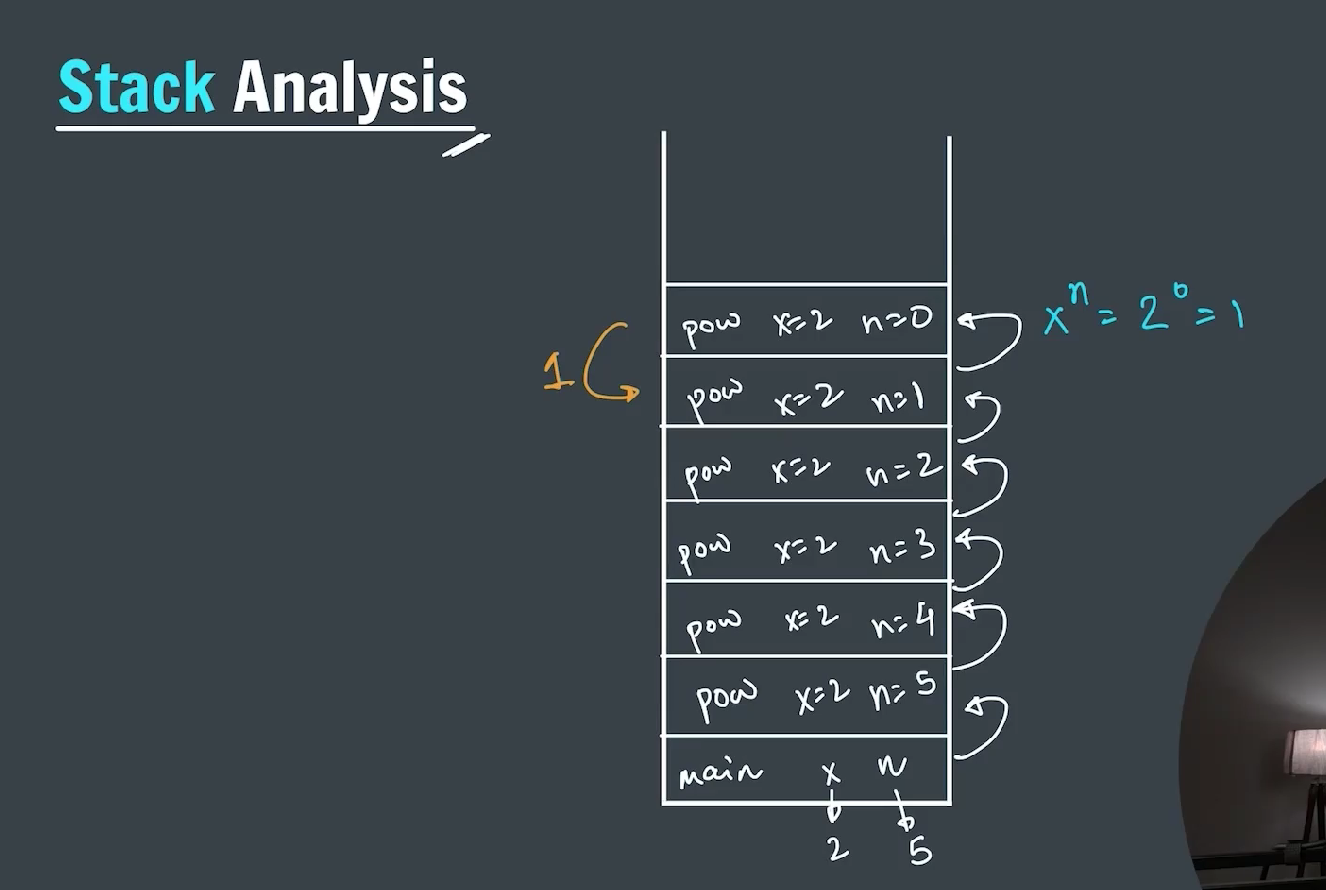 Stack Analysis
pow x=2 n=0
xⁿ = 2⁰ = 1
1
pow x=2 n=1
pow x=2 n=2
pow x=2 n=3
pow x=2 n=4
pow x=2 n=5
main x n
2 5